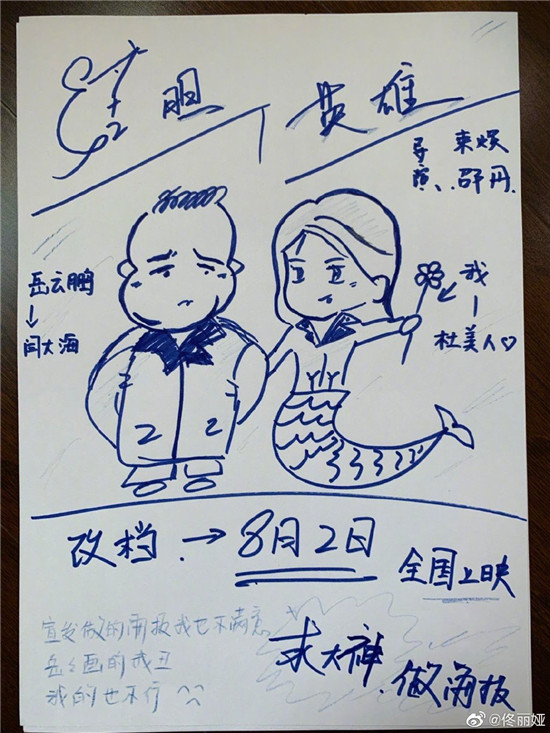 鼠胆英雄
导演、束焕
邵丹
岳云鹏
↓
闫大海
我
杜美人♡
2 2
改档→8月2日
全国上映
宣发做的海报我也不满意
岳々画的我丑
我的也不行
求大神
做海报
@佟丽娅